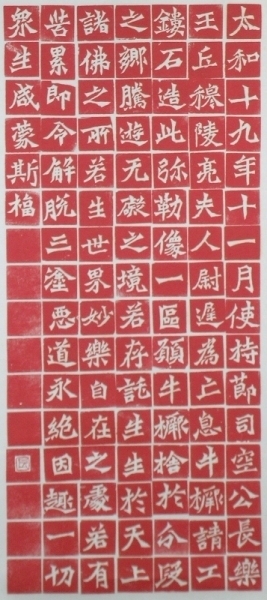 太和十九年十一月使持節司空公長樂
王丘穆陵亮夫人尉遲為亡息牛橛請工
鏤石造此弥勒像一區願牛橛捨於分段
之鄉騰遊无礙之境若存託生生於天上
諸佛之所若生世界妙樂自在之處若有
苦累即令解脫三塗惡道永絕因趣一切
眾生咸蒙斯福